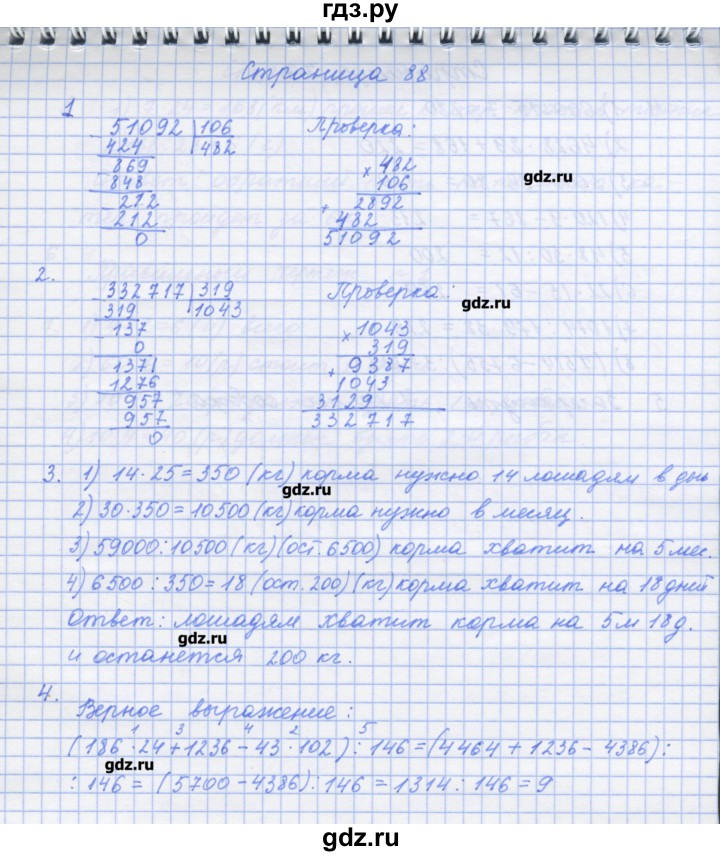 гдз.ру
Страница 88
1
51092 | 106
424 | 482
869
848
212
212
0
Проверка:
× 482
106
+ 2892
482
51092
gdz.ru
2.
332717 | 319
319 | 1043
137
0
1371
1276
957
957
0
Проверка:
gdz.ru
× 1043
319
+ 9387
1043
3129
332717
3. 1) 14·25=350 (кг) корма нужно 14 лошадям в день
gdz.ru
2) 30·350=10500 (кг) корма нужно в месяц.
3) 59000:10500 (кг) (ост. 6500) корма хватит на 5 мес.
4) 6500:350=18 (ост. 200) (кг) корма хватит на 18 дней
Ответ: лошадям хватит корма на 5м 18д.
gdz.ru
и останется 200 кг.
4. Верное выражение:
1 3 4 2 5
(186·24+1236-43·102):146=(4464+1236-4386):
:146=(5700-4386):146=1314:146=9
gdz.ru